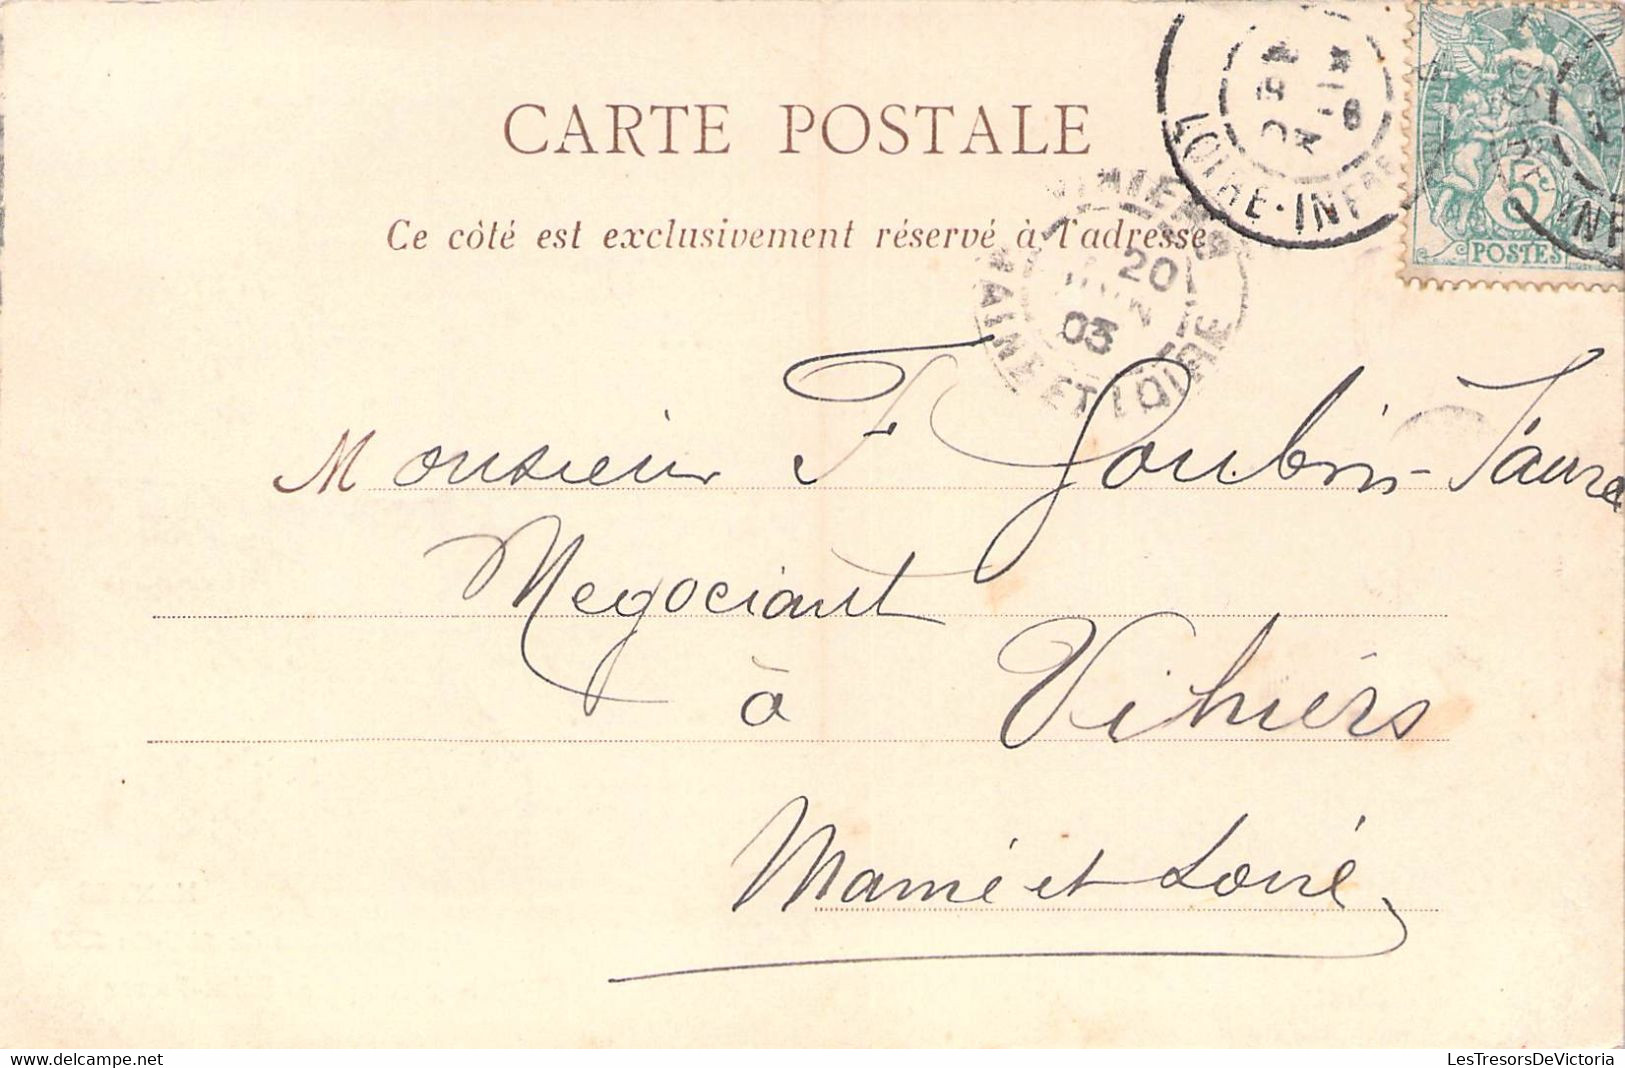 CARTE POSTALE
Ce côté est exclusivement réservé à l'adresse
LOIRE-INFRE
5
POSTES
VIHIERS
20
JUIN
03
MAINE ET LOIRE
Monsieur F Goubin-Favre
Negociant
à Vihiérs
Mainé et Loiré
www.delcampe.net
LesTresorsDeVictoria